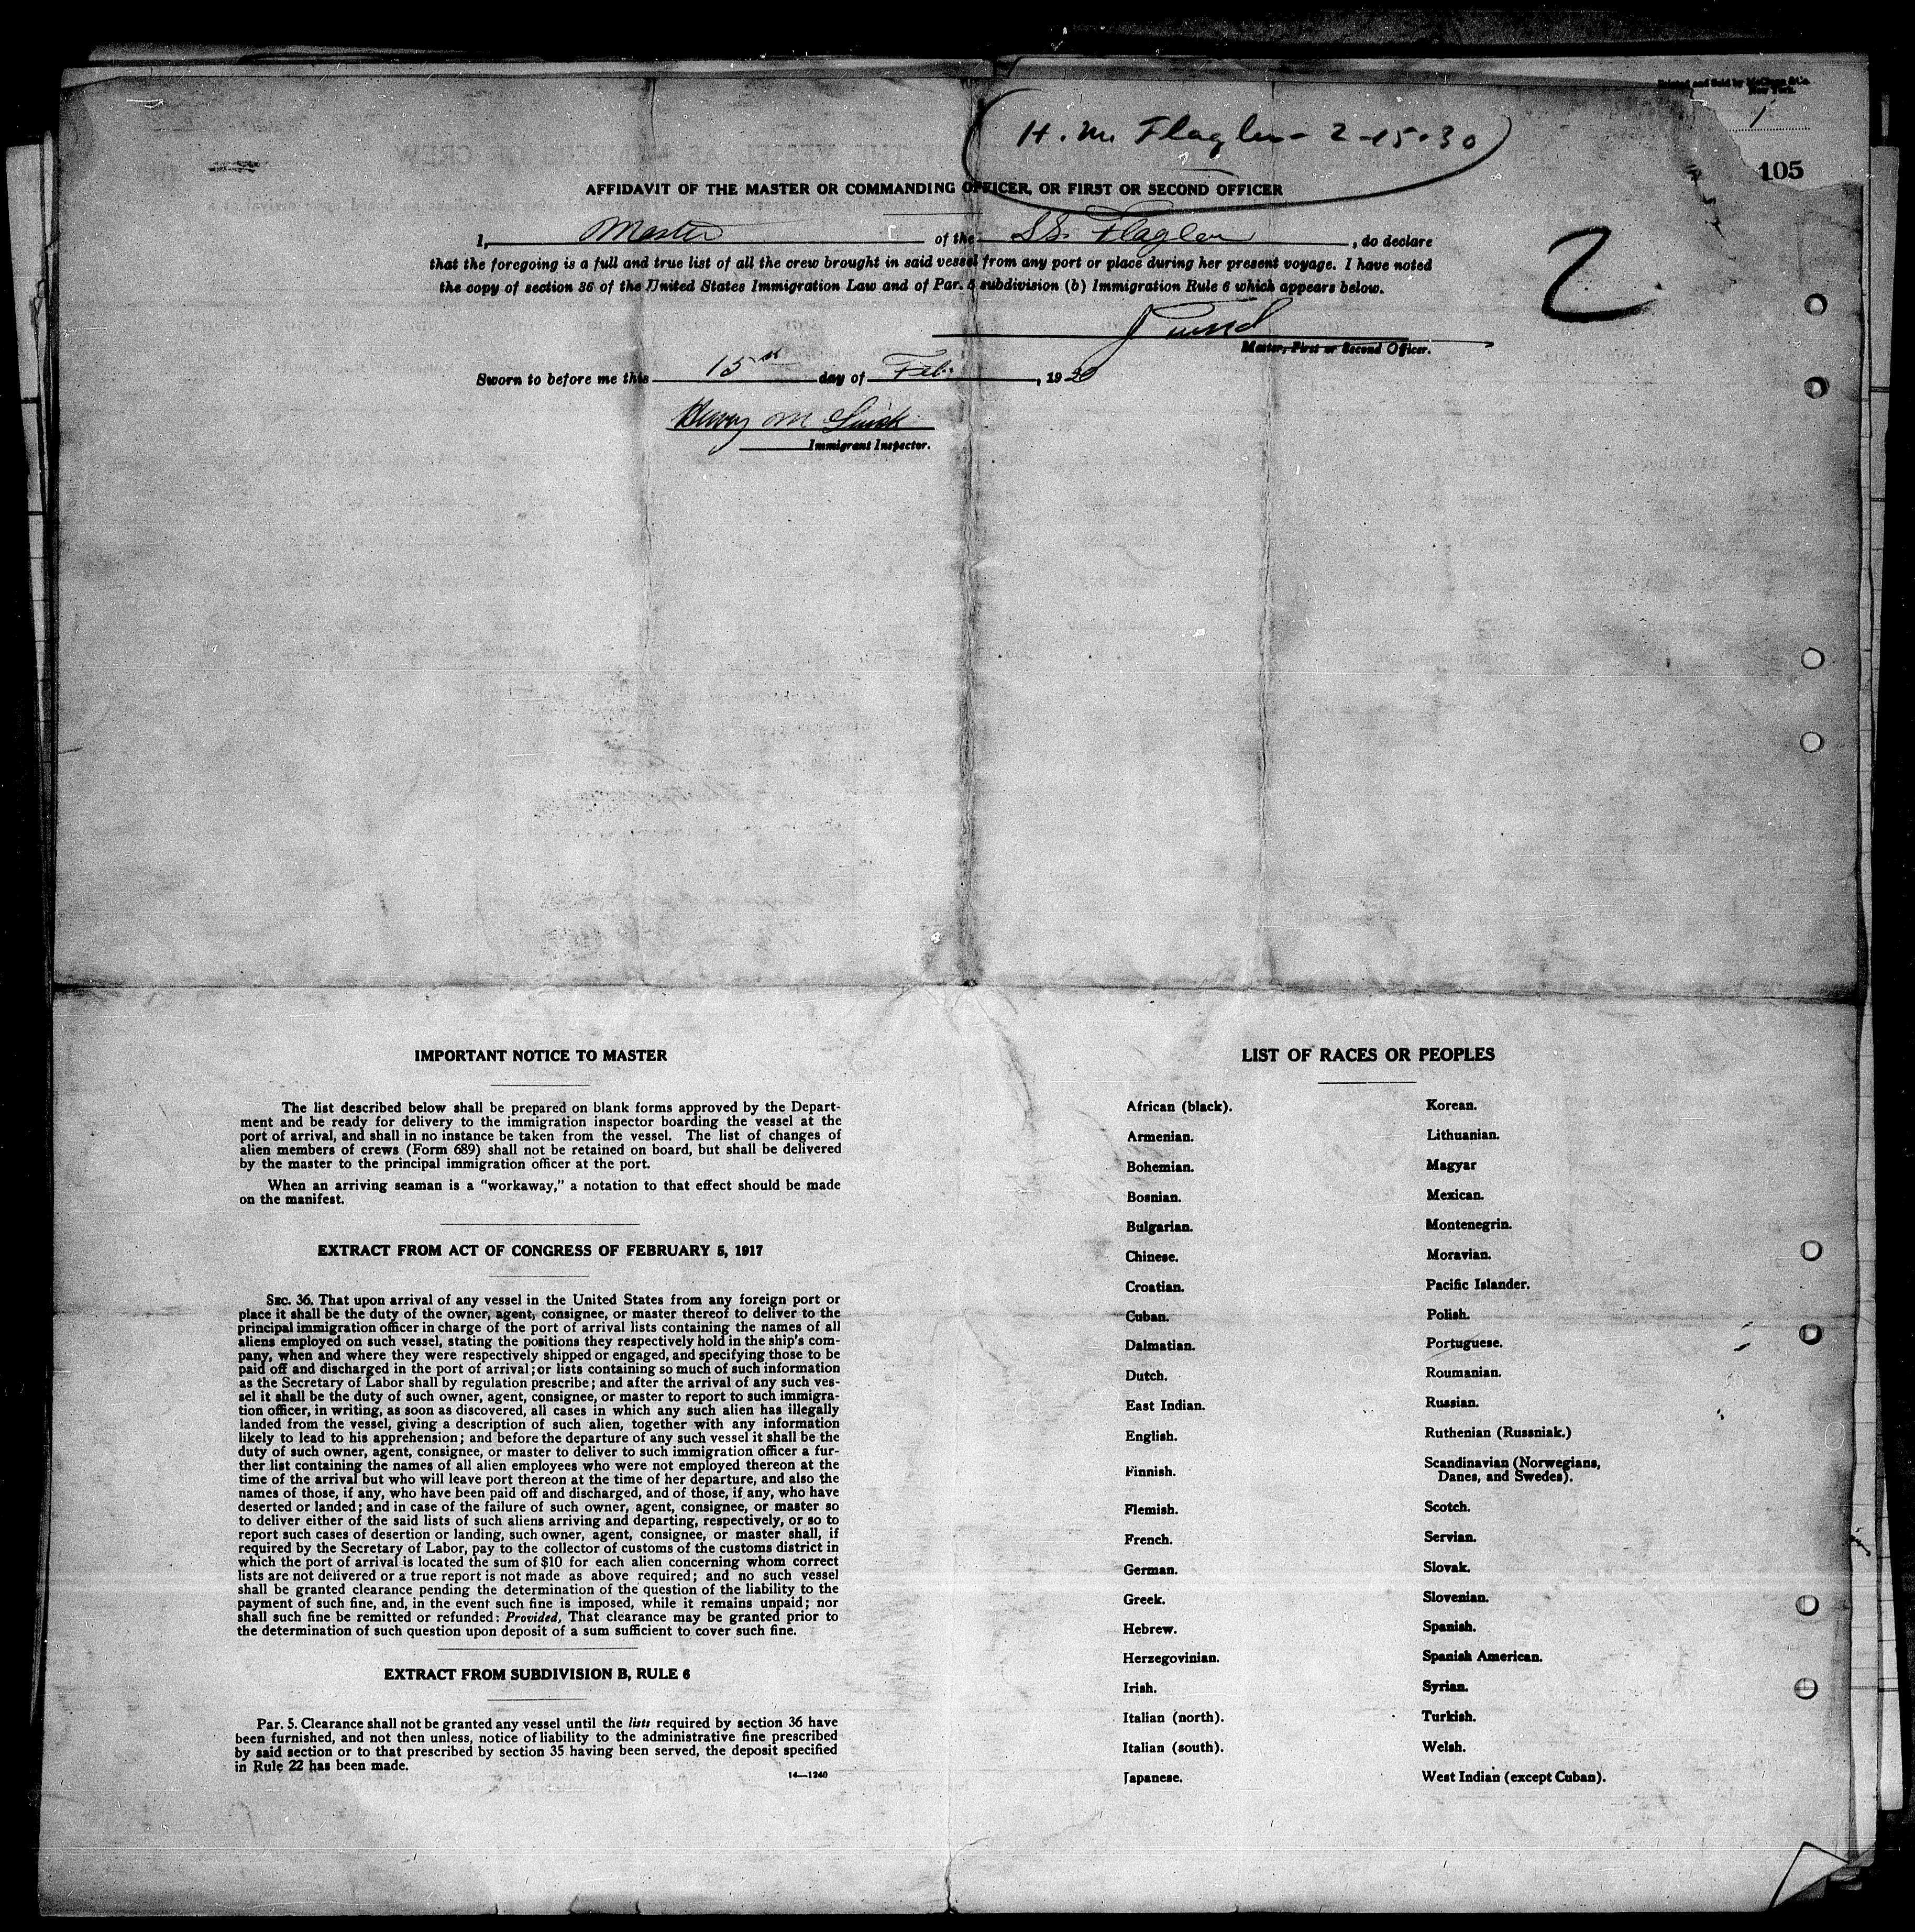 Printed and Sold by
New York.
H. M. Flagler - 2-15-30
1
105
AFFIDAVIT OF THE MASTER OR COMMANDING OFFICER, OR FIRST OR SECOND OFFICER
2
I, Master of the SS. Flagler, do declare
that the foregoing is a full and true list of all the crew brought in said vessel from any port or place during her present voyage. I have noted
the copy of section 36 of the United States Immigration Law and of Par. 5 subdivision (b) Immigration Rule 6 which appears below.
Master, First or Second Officer.
Sworn to before me this 15th day of Feb., 1930
Immigrant Inspector.
IMPORTANT NOTICE TO MASTER
The list described below shall be prepared on blank forms approved by the Depart-
ment and be ready for delivery to the immigration inspector boarding the vessel at the
port of arrival, and shall in no instance be taken from the vessel. The list of changes of
alien members of crews (Form 689) shall not be retained on board, but shall be delivered
by the master to the principal immigration officer at the port.
When an arriving seaman is a "workaway," a notation to that effect should be made
on the manifest.
EXTRACT FROM ACT OF CONGRESS OF FEBRUARY 5, 1917
SEC. 36. That upon arrival of any vessel in the United States from any foreign port or
place it shall be the duty of the owner, agent, consignee, or master thereof to deliver to the
principal immigration officer in charge of the port of arrival lists containing the names of all
aliens employed on such vessel, stating the positions they respectively hold in the ship's com-
pany, when and where they were respectively shipped or engaged, and specifying those to be
paid off and discharged in the port of arrival; or lists containing so much of such information
as the Secretary of Labor shall by regulation prescribe; and after the arrival of any such ves-
sel it shall be the duty of such owner, agent, consignee, or master to report to such immigra-
tion officer, in writing, as soon as discovered, all cases in which any such alien has illegally
landed from the vessel, giving a description of such alien, together with any information
likely to lead to his apprehension; and before the departure of any such vessel it shall be the
duty of such owner, agent, consignee, or master to deliver to such immigration officer a fur-
ther list containing the names of all alien employees who were not employed thereon at the
time of the arrival but who will leave port thereon at the time of her departure, and also the
names of those, if any, who have been paid off and discharged, and of those, if any, who have
deserted or landed; and in case of the failure of such owner, agent, consignee, or master so
to deliver either of the said lists of such aliens arriving and departing, respectively, or so to
report such cases of desertion or landing, such owner, agent, consignee, or master shall, if
required by the Secretary of Labor, pay to the collector of customs of the customs district in
which the port of arrival is located the sum of $10 for each alien concerning whom correct
lists are not delivered or a true report is not made as above required; and no such vessel
shall be granted clearance pending the determination of the question of the liability to the
payment of such fine, and, in the event such fine is imposed, while it remains unpaid; nor
shall such fine be remitted or refunded: Provided, That clearance may be granted prior to
the determination of such question upon deposit of a sum sufficient to cover such fine.
EXTRACT FROM SUBDIVISION B, RULE 6
Par. 5. Clearance shall not be granted any vessel until the lists required by section 36 have
been furnished, and not then unless, notice of liability to the administrative fine prescribed
by said section or to that prescribed by section 35 having been served, the deposit specified
in Rule 22 has been made.
14—1240
LIST OF RACES OR PEOPLES
African (black).
Armenian.
Bohemian.
Bosnian.
Bulgarian.
Chinese.
Croatian.
Cuban.
Dalmatian.
Dutch.
East Indian.
English.
Finnish.
Flemish.
French.
German.
Greek.
Hebrew.
Herzegovinian.
Irish.
Italian (north).
Italian (south).
Japanese.
Korean.
Lithuanian.
Magyar
Mexican.
Montenegrin.
Moravian.
Pacific Islander.
Polish.
Portuguese.
Roumanian.
Russian.
Ruthenian (Russniak.)
Scandinavian (Norwegians,
Danes, and Swedes).
Scotch.
Servian.
Slovak.
Slovenian.
Spanish.
Spanish American.
Syrian.
Turkish.
Welsh.
West Indian (except Cuban).